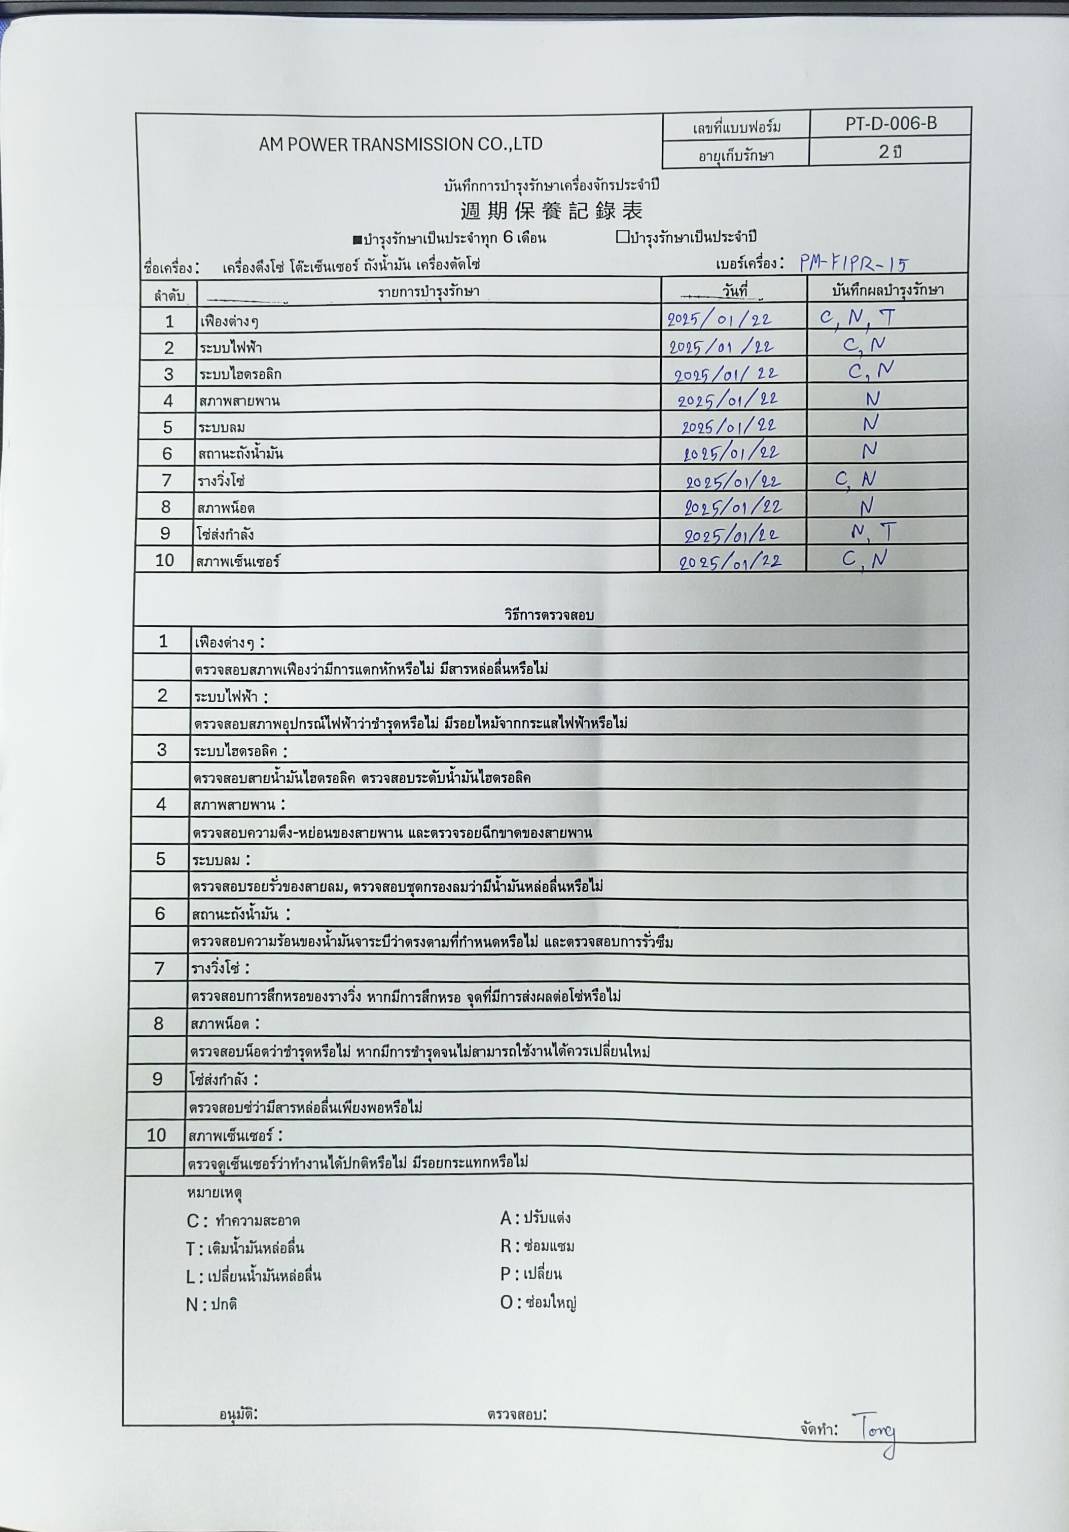 AM POWER TRANSMISSION CO.,LTD
เลขที่แบบฟอร์ม PT-D-006-B
อายุเก็บรักษา 2 ปี
บันทึกการบำรุงรักษาเครื่องจักรประจำปี
週期保養記錄表
■บำรุงรักษาเป็นประจำทุก 6 เดือน □บำรุงรักษาเป็นประจำปี
ชื่อเครื่อง: เครื่องดึงโซ่ โต๊ะเซ็นเซอร์ ถังน้ำมัน เครื่องตัดโซ่ เบอร์เครื่อง: PM-FIPR-15
ลำดับ รายการบำรุงรักษา วันที่ บันทึกผลบำรุงรักษา
1 เฟืองต่างๆ 2025/01/22 C, N, T
2 ระบบไฟฟ้า 2025/01/22 C, N
3 ระบบไฮดรอลิก 2025/01/22 C, N
4 สภาพสายพาน 2025/01/22 N
5 ระบบลม 2025/01/22 N
6 สถานะถังน้ำมัน 2025/01/22 N
7 รางวิ่งโซ่ 2025/01/22 C, N
8 สภาพน็อต 2025/01/22 N
9 โซ่ส่งกำลัง 2025/01/22 N, T
10 สภาพเซ็นเซอร์ 2025/01/22 C, N
วิธีการตรวจสอบ
1 เฟืองต่างๆ :
ตรวจสอบสภาพเฟืองว่ามีการแตกหักหรือไม่ มีสารหล่อลื่นหรือไม่
2 ระบบไฟฟ้า :
ตรวจสอบสภาพอุปกรณ์ไฟฟ้าว่าชำรุดหรือไม่ มีรอยไหม้จากกระแสไฟฟ้าหรือไม่
3 ระบบไฮดรอลิค :
ตรวจสอบสายน้ำมันไฮดรอลิค ตรวจสอบระดับน้ำมันไฮดรอลิค
4 สภาพสายพาน :
ตรวจสอบความตึง-หย่อนของสายพาน และตรวจรอยฉีกขาดของสายพาน
5 ระบบลม :
ตรวจสอบรอยรั่วของสายลม, ตรวจสอบชุดกรองลมว่ามีน้ำมันหล่อลื่นหรือไม่
6 สถานะถังน้ำมัน :
ตรวจสอบความร้อนของน้ำมันจาระบีว่าตรงตามที่กำหนดหรือไม่ และตรวจสอบการรั่วซึม
7 รางวิ่งโซ่ :
ตรวจสอบการสึกหรอของรางวิ่ง หากมีการสึกหรอ จุดที่มีการส่งผลต่อโซ่หรือไม่
8 สภาพน็อต :
ตรวจสอบน็อตว่าชำรุดหรือไม่ หากมีการชำรุดจนไม่สามารถใช้งานได้ควรเปลี่ยนใหม่
9 โซ่ส่งกำลัง :
ตรวจสอบซ่ว่ามีสารหล่อลื่นเพียงพอหรือไม่
10 สภาพเซ็นเซอร์ :
ตรวจดูเซ็นเซอร์ว่าทำงานได้ปกติหรือไม่ มีรอยกระแทกหรือไม่
หมายเหตุ
C : ทำความสะอาด A : ปรับแต่ง
T : เติมน้ำมันหล่อลื่น R : ซ่อมแซม
L : เปลี่ยนน้ำมันหล่อลื่น P : เปลี่ยน
N : ปกติ O : ซ่อมใหญ่
อนุมัติ: ตรวจสอบ: จัดทำ: Tong